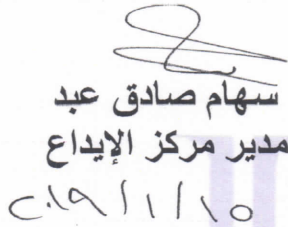 سهام صادق عبد
مدير مركز الإيداع
٢٠١٩/١/١٥